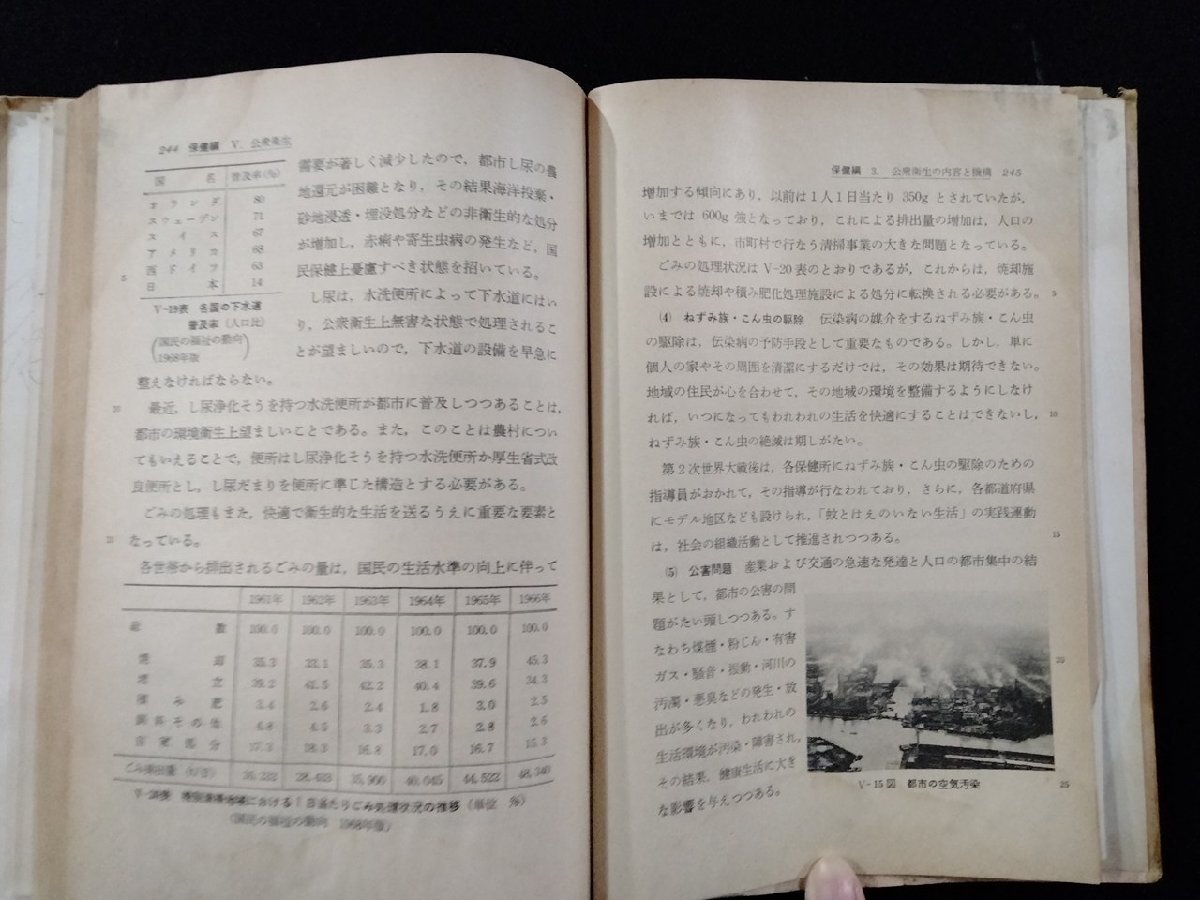 244 保健編 V. 公衆衛生
国 名 普及率(%)
オランダ 80
スウェーデン 71
スイス 67
アメリカ 68
西ドイツ 63
日本 14
V-19表 各国の下水道
普及率(人口比)
(国民の福祉の動向
1968年版)
需要が著しく減少したので,都市し尿の農
地還元が困難となり,その結果海洋投棄・
砂地浸透・埋没処分などの非衛生的な処分
が増加し,赤痢や寄生虫病の発生など,国
5
民保健上憂慮すべき状態を招いている。
し尿は,水洗便所によって下水道にはい
り,公衆衛生上無害な状態で処理されるこ
とが望ましいので,下水道の設備を早急に
整えなければならない。
10
最近,し尿浄化そうを持つ水洗便所が都市に普及しつつあることは,
都市の環境衛生上望ましいことである。また,このことは農村につい
てもいえることで,便所はし尿浄化そうを持つ水洗便所か厚生省式改
良便所とし,し尿だまりを便所に準じた構造とする必要がある。
ごみの処理もまた,快適で衛生的な生活を送るうえに重要な要素と
15
なっている。
各世帯から排出されるごみの量は,国民の生活水準の向上に伴って
1961年 1962年 1963年 1964年 1965年 1966年
総数 100.0 100.0 100.0 100.0 100.0 100.0
焼却 35.3 33.1 35.3 38.1 37.9 45.3
埋立 39.2 41.5 42.2 40.4 39.6 34.3
3.4 2.6 2.4 1.8 3.0 2.5
4.8 4.5 3.3 2.7 2.8 2.6
自家処分 17.3 18.3 16.8 17.0 16.7 15.3
40,645 44,522 48,340
における1日当たりごみ処理状況の推移(単位 %)
(国民の福祉の動向 1968年版)
保健編 3. 公衆衛生の内容と機構 245
増加する傾向にあり,以前は1人1日当たり350gとされていたが,
いまでは600g強となっており,これによる排出量の増加は,人口の
増加とともに,市町村で行なう清掃事業の大きな問題となっている。
ごみの処理状況はV-20表のとおりであるが,これからは,焼却施
設による焼却や積み肥化処理施設による処分に転換される必要がある。
5
(4) ねずみ族・こん虫の駆除 伝染病の媒介をするねずみ族・こん虫
の駆除は,伝染病の予防手段として重要なものである。しかし,単に
個人の家やその周囲を清潔にするだけでは,その効果は期待できない。
地域の住民が心を合わせて,その地域の環境を整備するようにしなけ
れば,いつになってもわれわれの生活を快適にすることはできないし,
10
ねずみ族・こん虫の絶滅は期しがたい。
第2次世界大戦後は,各保健所にねずみ族・こん虫の駆除のための
指導員がおかれて,その指導が行なわれており,さらに,各都道府県
にモデル地区なども設けられ,「蚊とはえのいない生活」の実践運動
は,社会の組織活動として推進されつつある。
15
(5) 公害問題 産業および交通の急速な発達と人口の都市集中の結
果として,都市の公害の問
題がたい頭しつつある。す
なわち煤煙・粉じん・有害
ガス・騒音・振動・河川の
20
汚濁・悪臭などの発生・放
出が多くなり,われわれの
生活環境が汚染・障害され,
その結果,健康生活に大き
な影響を与えつつある。
V-15図 都市の空気汚染
25